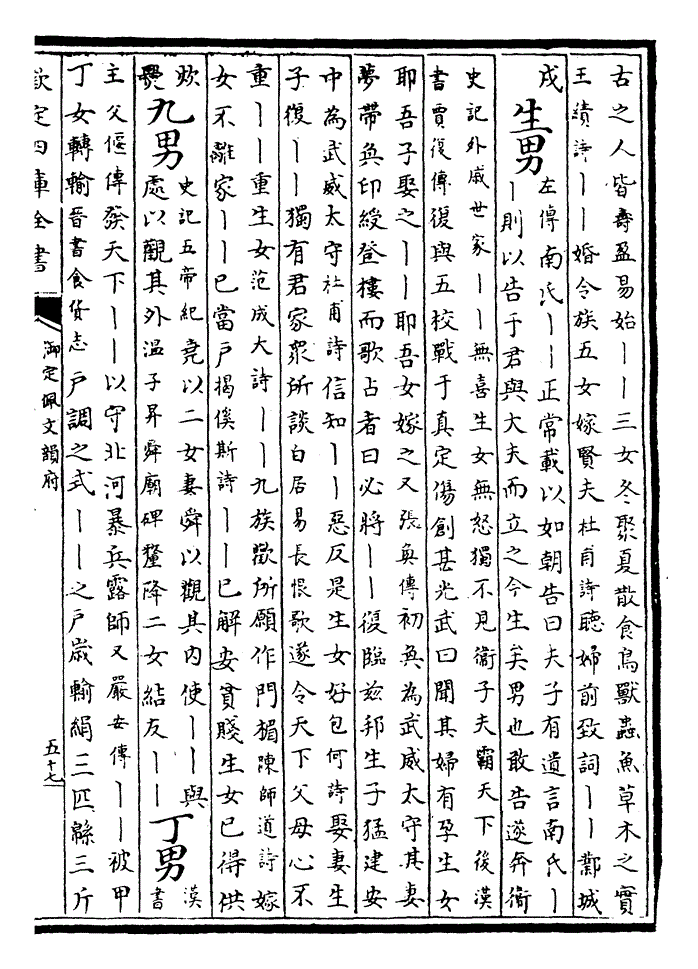 古之人皆壽盈易始丨丨三女冬聚夏散食鳥獸蟲魚草木之實
王績詩丨丨婚令族五女嫁賢夫杜甫詩聽婦前致詞丨丨鄴城
戍
生男
左傳南氏丨丨正常載以如朝告曰夫子有遺言南氏丨
丨則以告于君與大夫而立之今生矣男也敢告遂奔衛
史記外戚世家丨丨無喜生女無怒獨不見衛子夫霸天下後漢
書賈復傳復與五校戰于真定傷創甚光武曰聞其婦有孕生女
耶吾子娶之丨丨耶吾女嫁之又張奐傳初奐為武威太守其妻
夢帶奐印綬登樓而歌占者曰必將丨丨復臨兹邦生子猛建安
中為武威太守杜甫詩信知丨丨惡反是生女好包何詩娶妻生
子復丨丨獨有君家衆所談白居易長恨歌遂令天下父母心不
重丨丨重生女范成大詩丨丨九族歡所願作門楣陳師道詩嫁
女不離家丨丨已當戸揭傒斯詩丨丨已解安貧賤生女已得供
炊
爨
九男
史記五帝紀堯以二女妻舜以觀其内使丨丨與
處以觀其外温子昇舜廟碑釐降二女結友丨丨
丁男
漢
書
主父偃傳發天下丨丨以守北河暴兵露師又嚴安傳丨丨被甲
丁女轉輸晉書食貨志戸調之式丨丨之戸歲輸絹三匹緜三斤
欽定四庫全書
御定佩文韻府
五十七